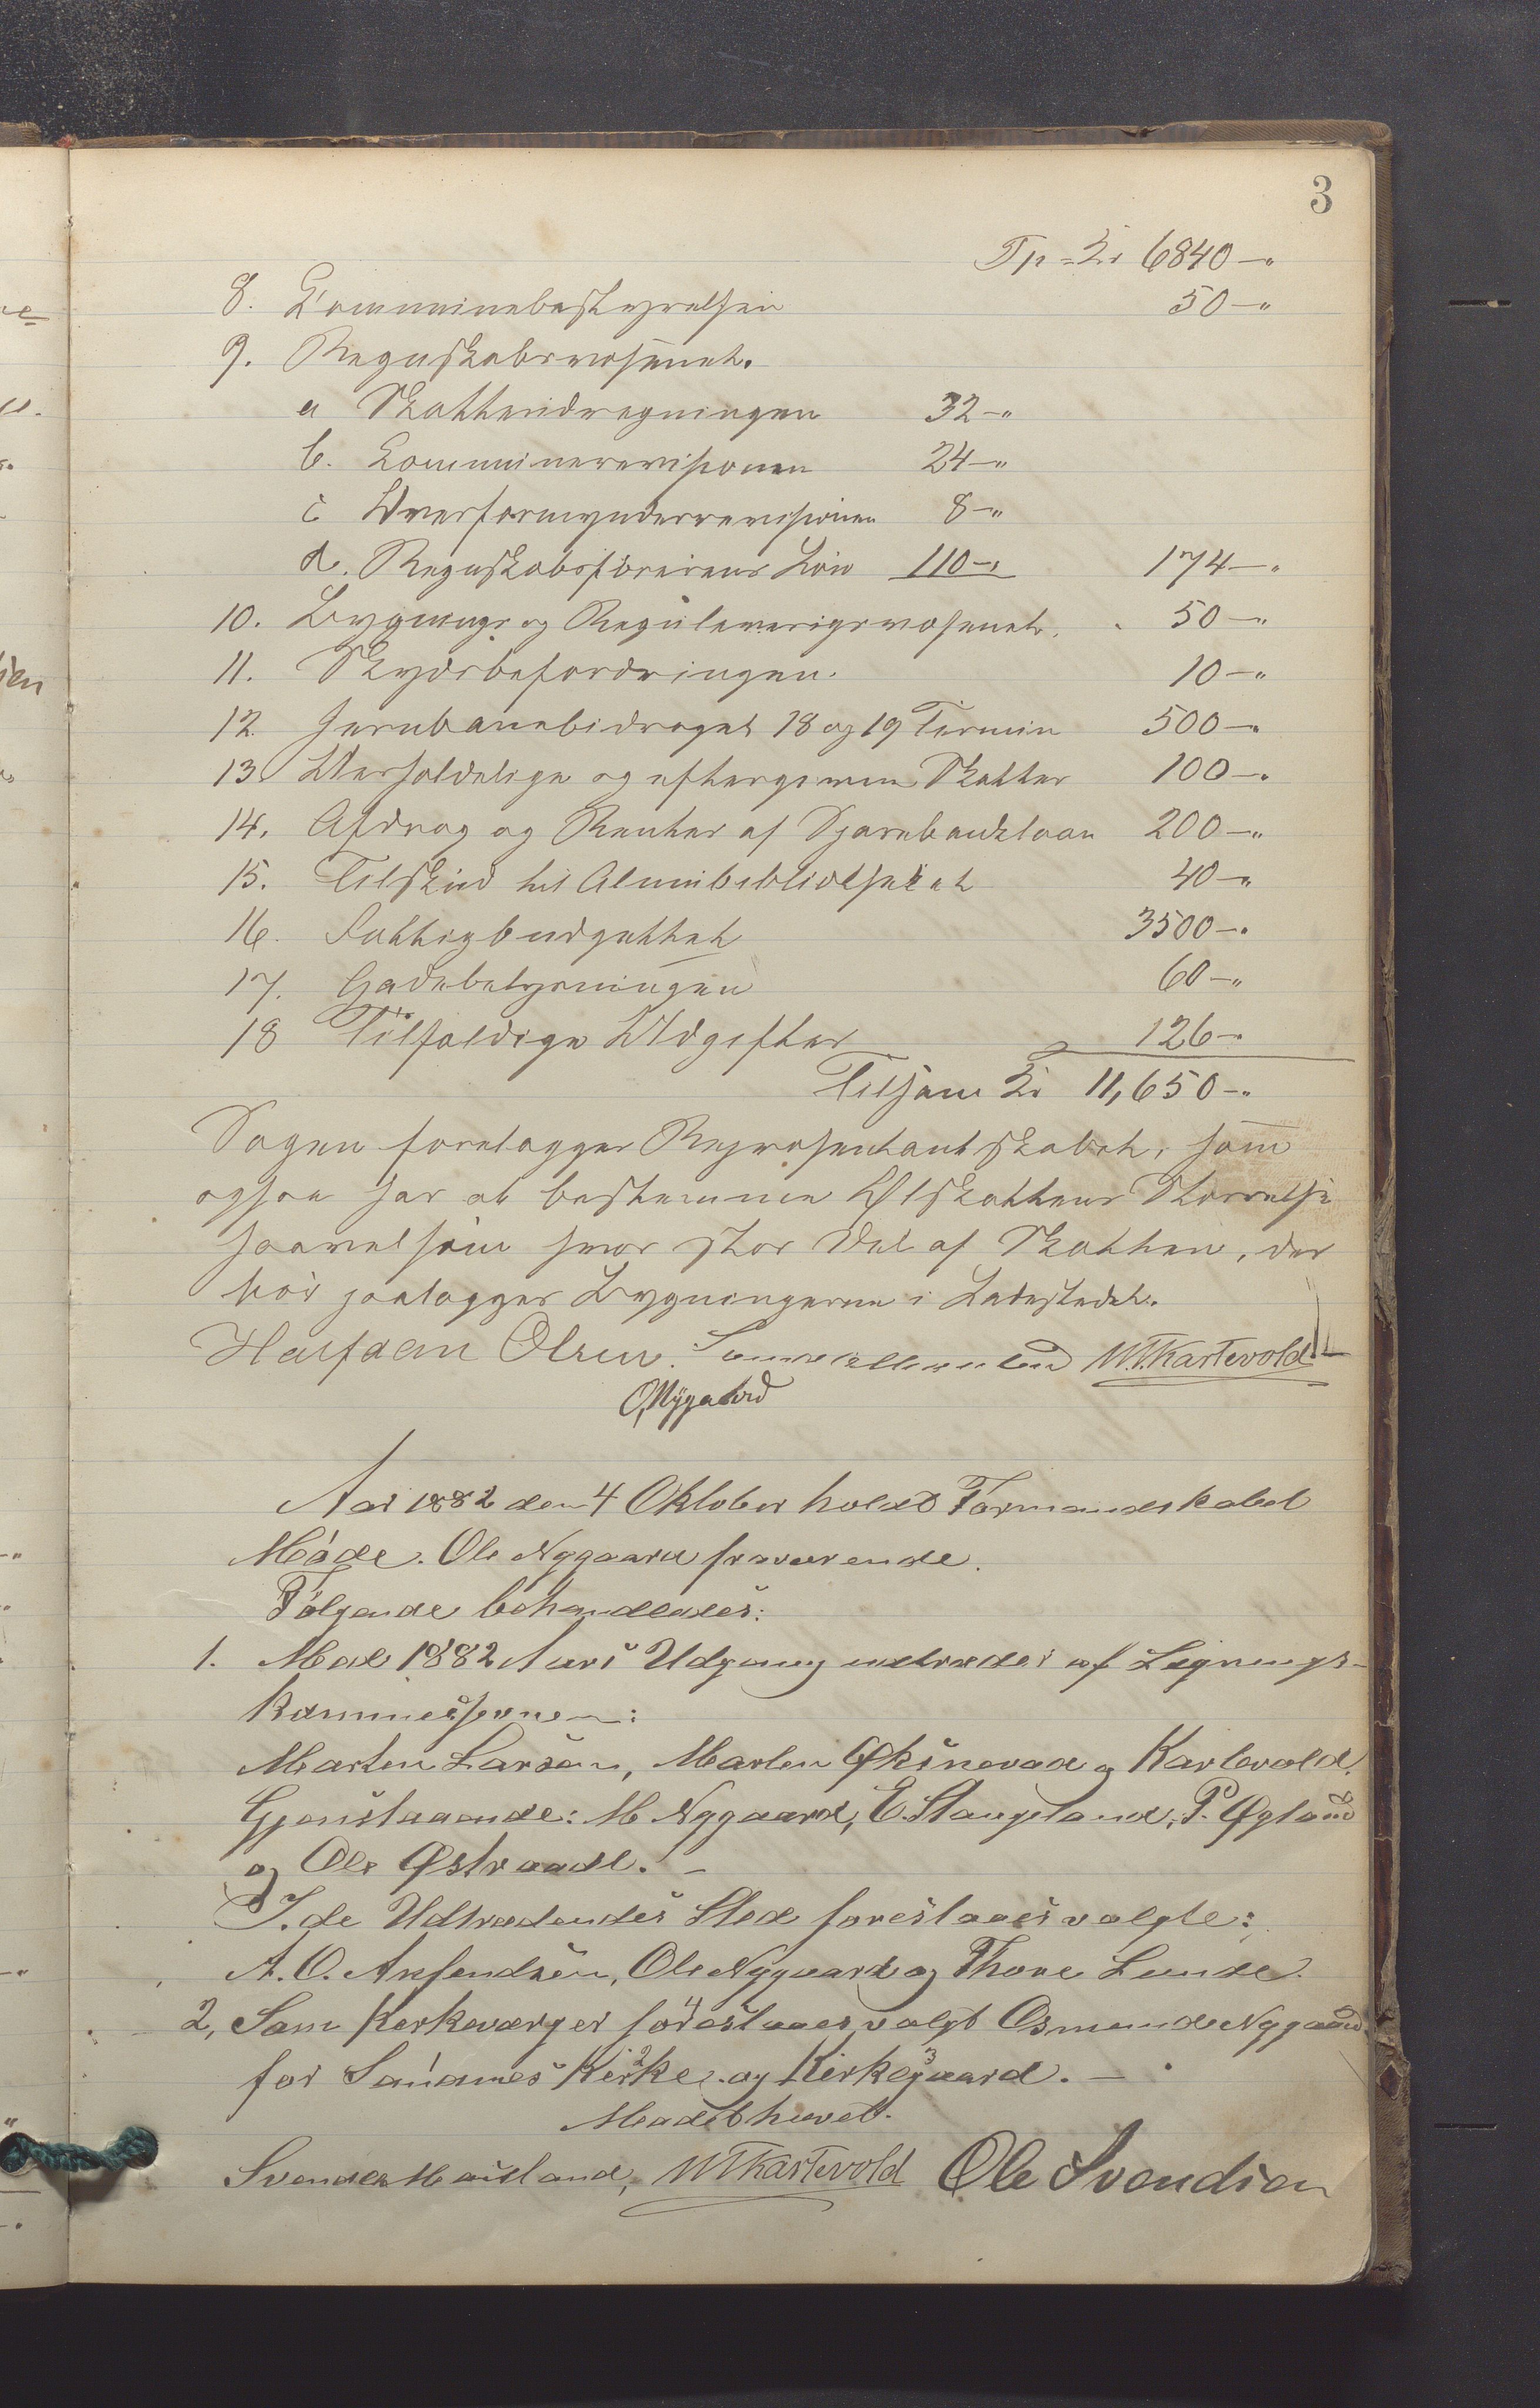 3
Tp = Kr 6840 – "
8. Communebestyrelsen 50 – "
9. Regnskabsvæsenet.
a Skatteinddragningen 32 – "
b. Communerevisionen 24 – "
c Overformynderrevisionen 8 – "
d. Regnskabsførerens Løn 110 – " 174 – "
10. Bygnings og Reguleringsvæsenet. 50 – "
11. Skydsbefordringen. 10 – "
12. Jernbanebidraget 18 og 19 Termin 500 – "
13. Uerholdelige og eftergivne Skatter 100 – "
14. Afdrag og Renter af Sparebanklaan 200 – "
15. Tilskud til Almuebibliotheket 40 – "
16. Fattigbudgettet 3500 – "
17. Gadebelysningen 60 – "
18 Tilfældige Udgifter 126 – "
Tilsam Kr 11,650 – "
Sagen forelægges Repræsentantskabet, som
ogsaa har at bestemme Ølskattens Størrelse
saavelsom hvor stor Del af Skatten, der
bør paalægges Bygningerne i Ladestedet.
Halfdan Olsen. M. T. Kartevold
O, Nygaard
Aar 1882 den 4 Oktober holdt Formandskabet
Møde. Ole Nygaard fraværende.
Følgende behandledes:
1. Med 1882 Aars Udgang udtræder af Lignings-
kommissionen:
Marten Larsen, Marten Øksnevad og Kartevold.
Gjenstaaende: M Nygaard, E. Stangeland, P. Øgland
og Ole Østraadt. –
I de Udtrædendes Sted foreslaaes valgte:
A. O. Anfendsen, Ole Nygaard og Thore Lunde.
2, Som Kirkeværger foreslaaes valgt Osmund Nygaard
for Sandnes Kirke og Kirkegaard. –
Mødet hævet.
Svend Hauland, M T Kartevold Ole Svendsen